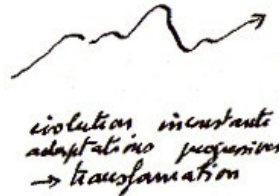 évolution inconstante
adaptations progressives
→ transformation